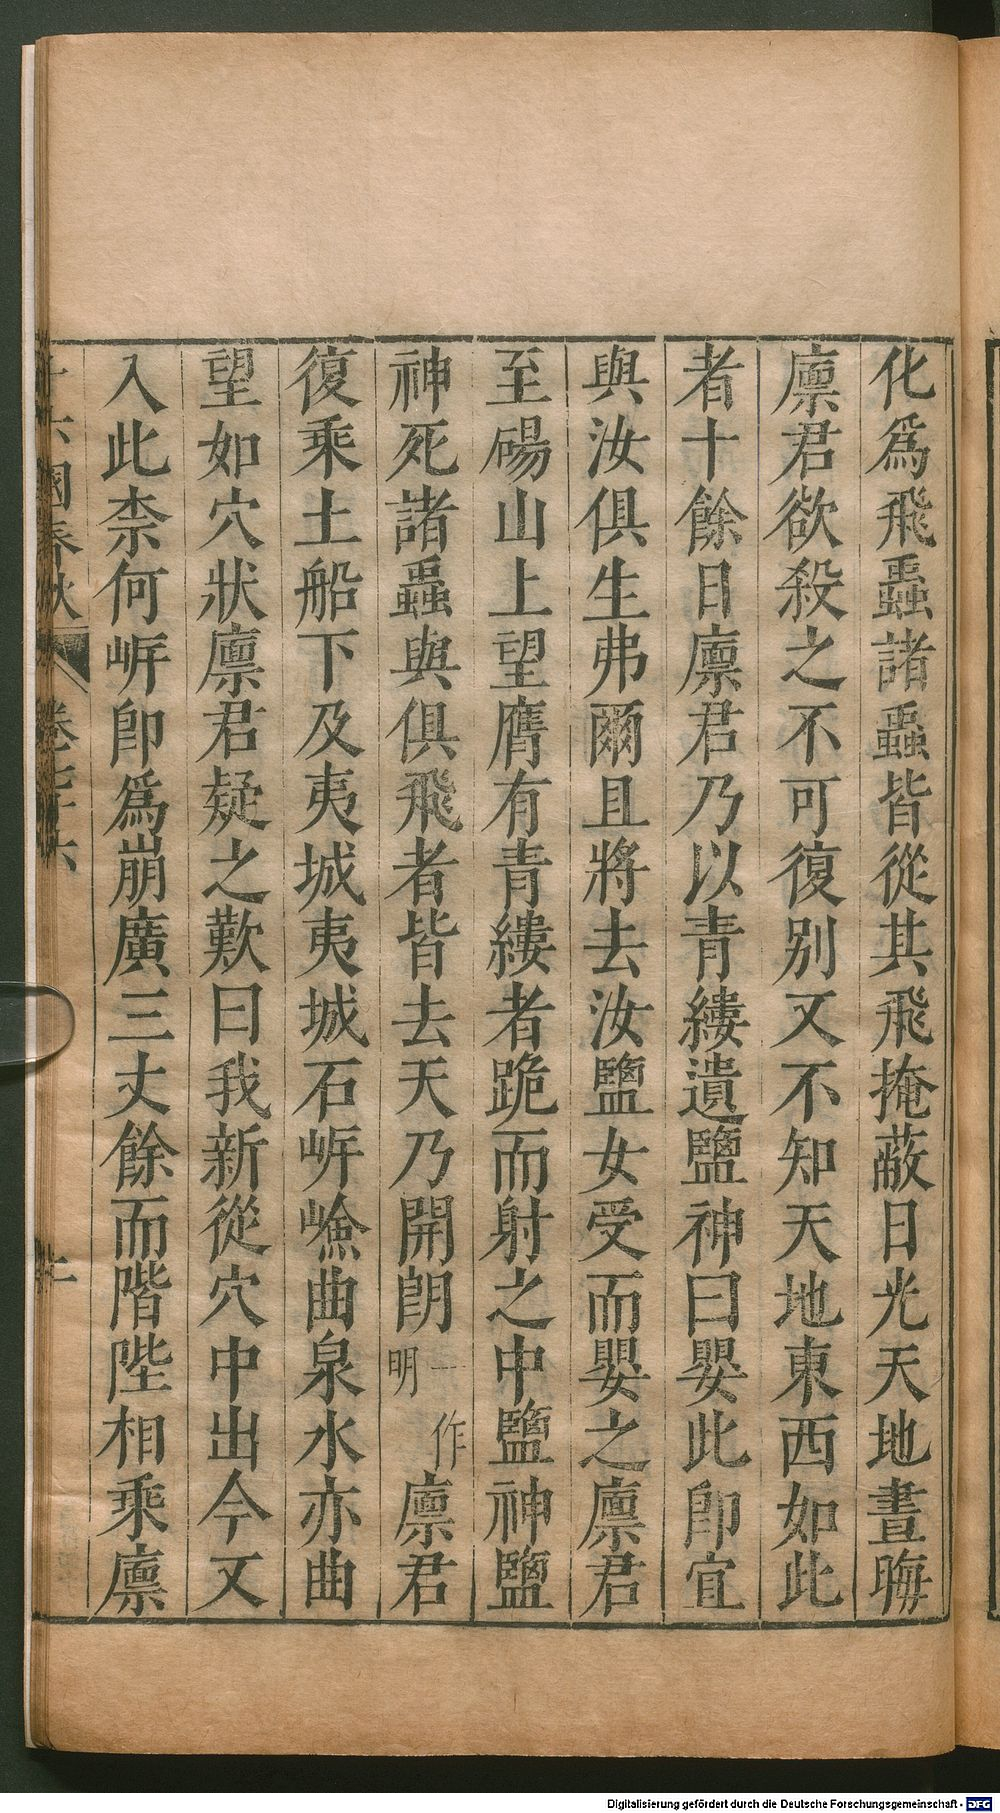 化爲飛蟲諸蟲皆從其飛掩蔽日光天地晝晦
廪君欲殺之不可復别又不知天地東西如此
者十餘日廪君乃以青縷遺鹽神曰嬰此卽宜
與汝俱生弗爾且將去汝鹽女受而嬰之廪君
至碭山上望膺有青縷者跪而射之中鹽神鹽
神死諸蟲與俱飛者皆去天乃開朗一作明廪君
復乘土船下及夷城夷城石岓嶮曲泉水亦曲
望如穴狀廪君疑之歎曰我新從穴中出今又
入此柰何岓卽爲崩廣三丈餘而階陛相乘廪
十六國春秋 卷七十六
Digitalisierung gefördert durch die Deutsche Forschungsgemeinschaft - DFG